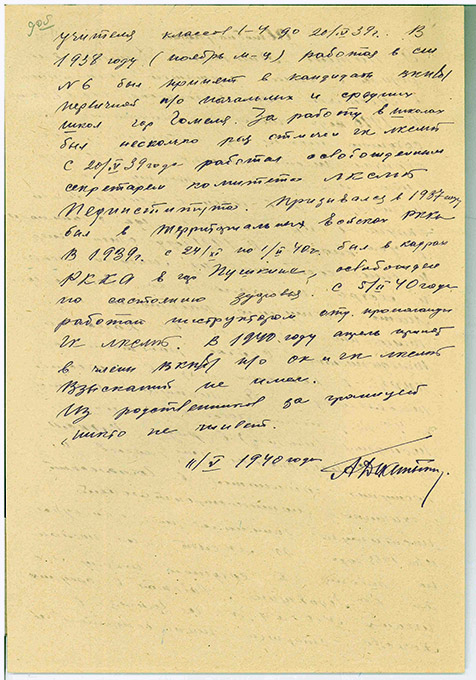 учителя классов 1-4 до 20/IV 39г. В
1938 году (ноябрь м-ц) работая в сш
N6 был принят в кандидаты ВКП(б)
первичной п/о начальных и средних
школ гор Гомеля. За работу в школах
был несколько раз отмечен гк ЛКСМБ
С 20/IV 39 года работал освобожденным
секретарем комитета ЛКСМБ
Пединститута. Призывался в 1937 году
был в территориальных войсках РККА
В 1939г. с 24/ по 1/II 40г. был в кадрах
РККА в гор Пушкине, освобожден
по состоянию здоровья. С 5/II 40 года
работал инструктором отд. пропаганды
ГК ЛКСМБ. В 1940 году апрель принят
в члены ВКП(б) п/о ОК и ГК ЛКСМБ
Взысканий не имел.
Из родственников за границей
никто не живет.
11/V 1940 года